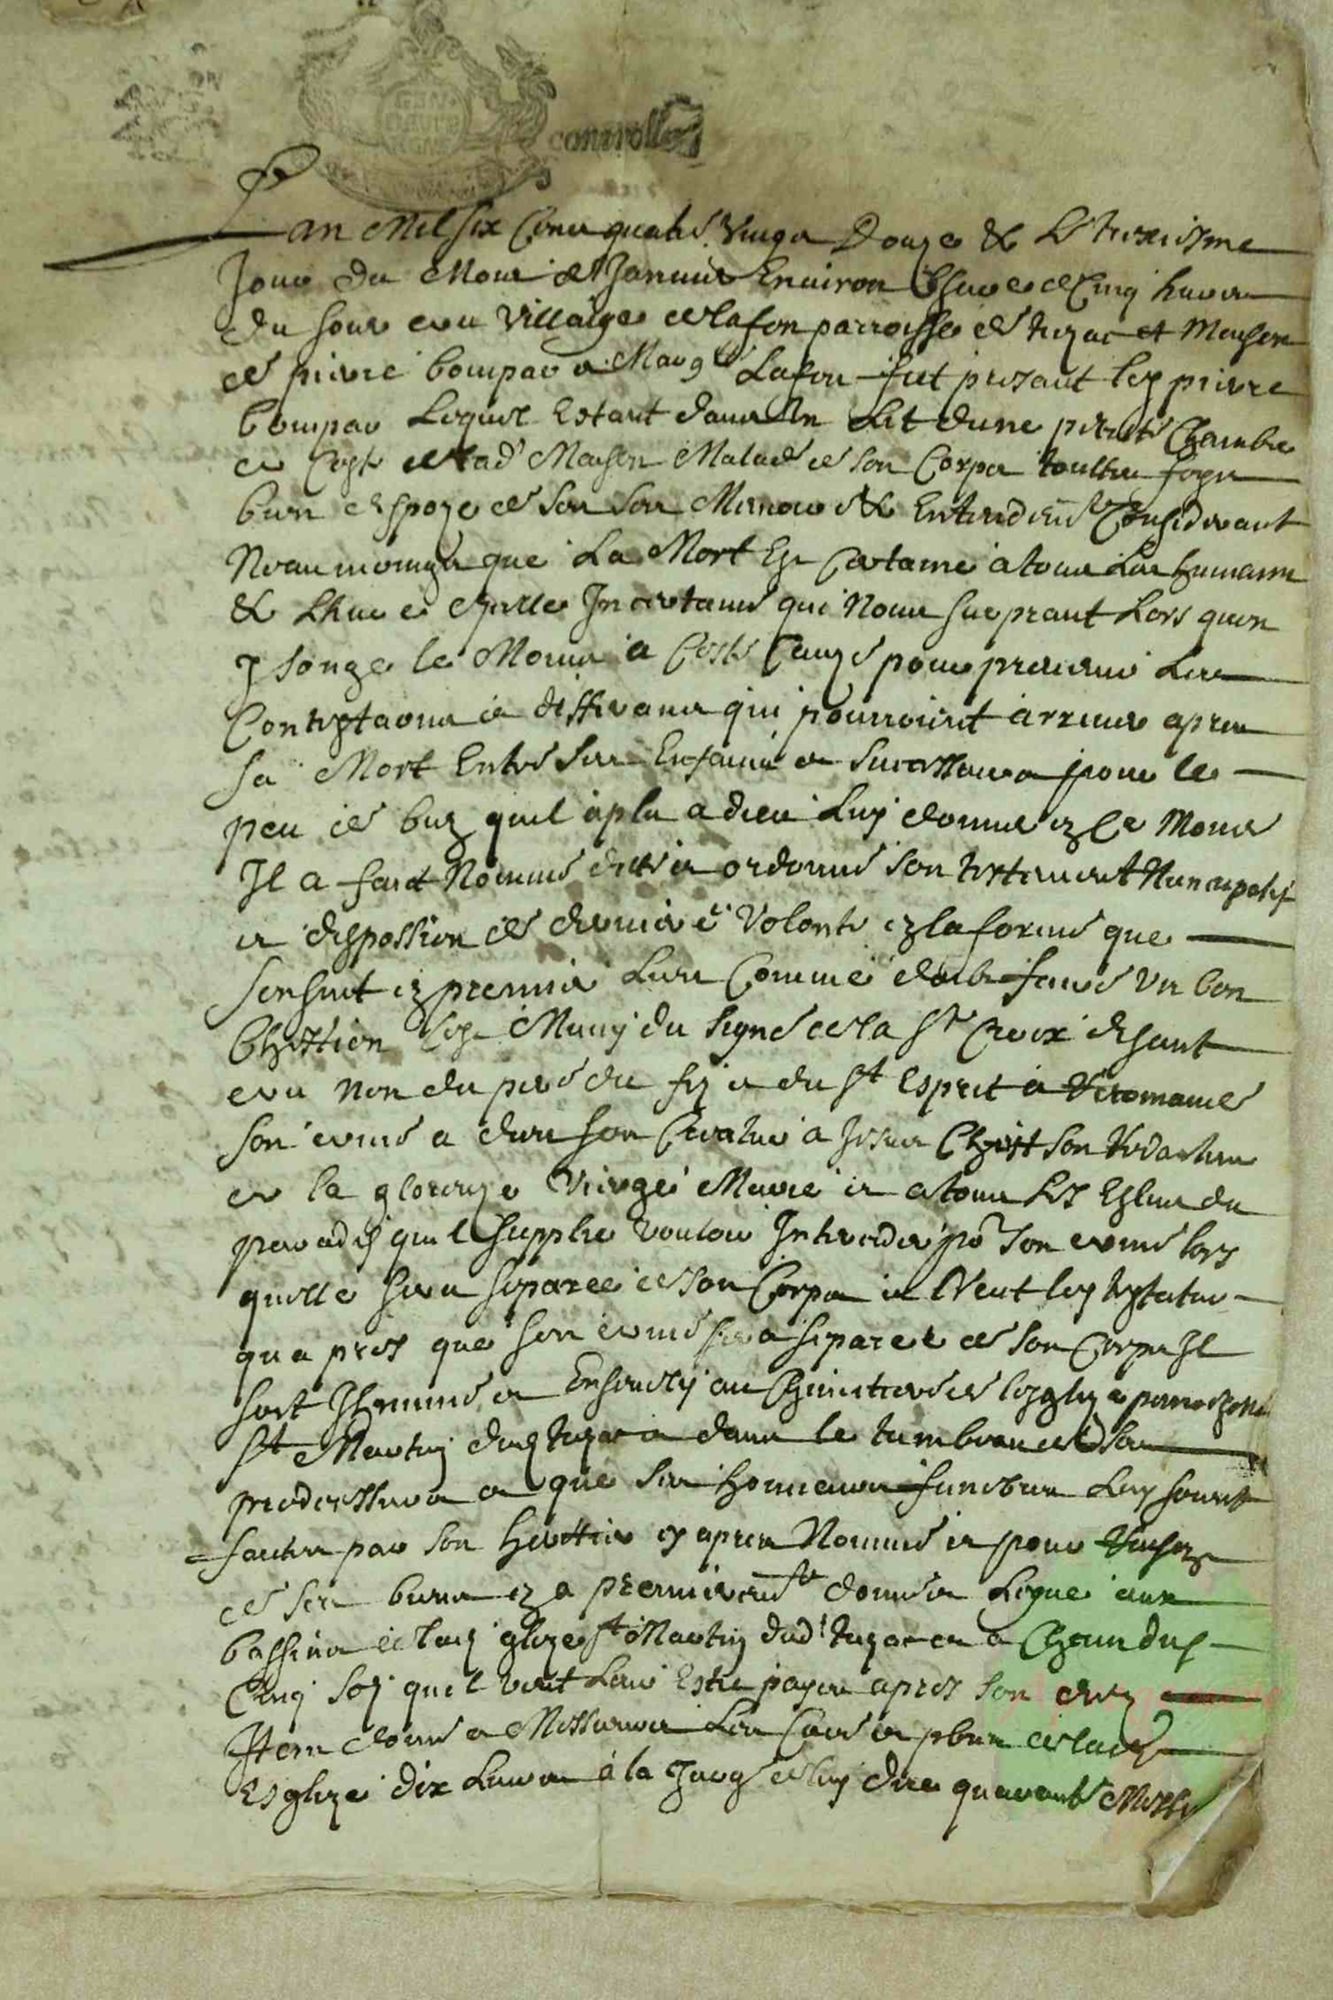 controlle
Lan Mil six Cens quatre vingt Douze & le troisiesme
Jour du Mois de Janvier Environ Lheure de Cinq heures
du soir au Villaige de lafon parroisse de tuzac et Maison
de pierre bompar & Marg.te Lafon fut presant led pierre
bompar Lequel Estant dans Un Lit dune petite Chambre
de lad Maison Malade de son Corps toutte foys
bien dispoze de son sen Memoire & Entendem.t Considerant
Neaumoings que La Mort Est Certaine a tous Les humains
& Lheure dicelle Incertaine qui Nous surprant Lors quon
y songe le Moins a Ceste Cauze pour prevenir Les
Contestaons et differans qui pourroient arriver apres
sa Mort Entre ses Enfans et Successeurs pour le
peu de biens quil a plu a dieu Luy donner en Ce Monde
Il a faict Nomme dicte et ordonne son testement Nuncupatif
et disposition de derniere Volonte en la forme que
sensuit en premier Lieu Comme doibt faire Un bon
Chrestien sest Muny du signe de la S.te Croix disant
au Non du pere du fiz et du S.t Esprit a recomande
son ame a dieu son Createur a Jesus Christ son redampteur
et la glorieuze Vierge Marie et a tous Les Eslus du
paradis quil supplie vouloir Interceder po.r son ame lors
quelle sera separee de son Corps et Veut led testateur
quapres que son ame sera separee de son Corps Il
soit Inhume et Ensevely au Cimetiere de lesglize parroissielle
S.t Martin dud tuzac et dans le tumbeau de ses
predecesseurs et que ses honneurs funebres Luy soient
faictes par son heretier cy apres Nomme et pour disposer
de ses biens en a premierem.t donne et Legue aux
bassins de lad esglize S.t Martin dud tuzac et a Chascun dus
Cinq solz quil veut Leur Estre payes apres son deces
Item donne a Messieurs Les Cure et pbres de lad
Esglize dix Livres a la Charge de luy dire quarante Messes